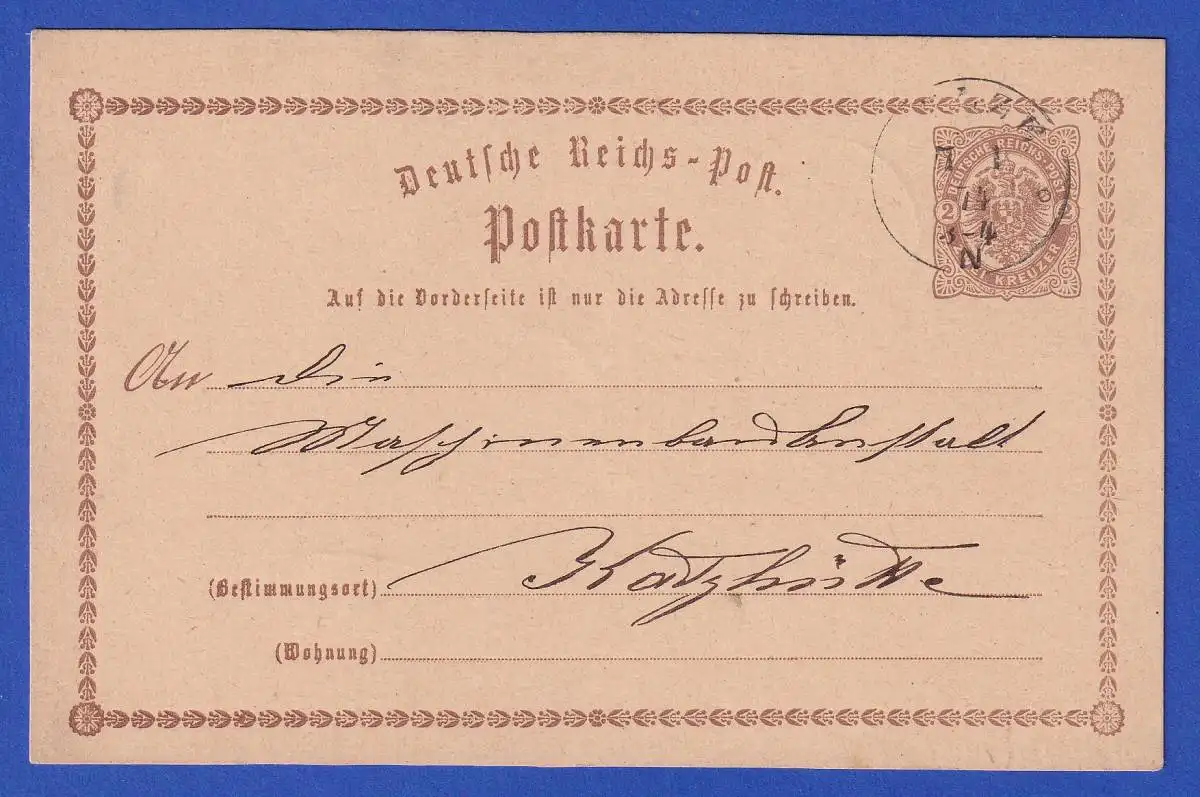 Deutsche Reichs-Post.
Postkarte.
Auf die Vorderseite ist nur die Adresse zu schreiben.
DEUTSCHE REICHS-POST
2 2
KREUZER
1
3-4
N
An die
Maschinenbauanstalt
(Bestimmungsort) Katzhütte
(Wohnung)